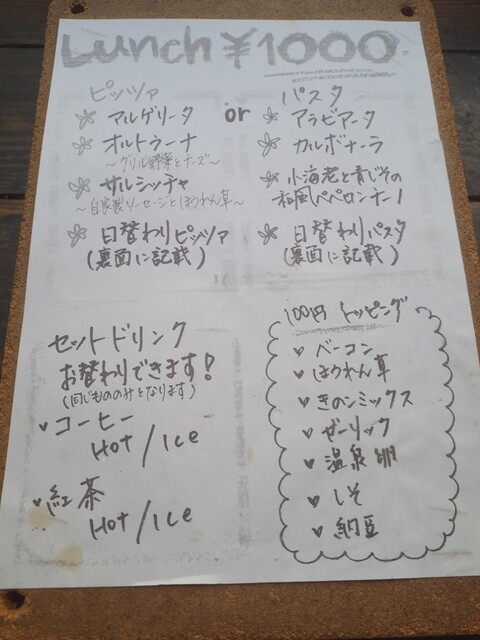 Lunch ¥1000
ピッツァ
マルゲリータ
オルトラーナ
～グリル野菜とチーズ～
サルシッチャ
～自家製ソーセージとほうれん草～
日替わりピッツァ
(裏面に記載)
or
パスタ
アラビアータ
カルボナーラ
小海老と青じその
和風ペペロンチーノ
日替わりパスタ
(裏面に記載)
セットドリンク
お替わりできます!
(同じもののみとなります)
コーヒー
Hot/Ice
紅茶
Hot/Ice
100円 トッピング
ベーコン
ほうれん草
きのこミックス
ガーリック
温泉卵
しそ
納豆